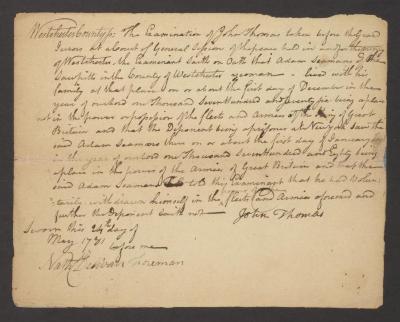 Westchester County ss. The Examination of John Thomas taken before the Grand
Jurors at a Court of General Session of the peace held in and for the County
of Westchester, the Examinant Saith on Oath that Adam Seamans of the
Sawpitts in the County of Westchester yeoman - lived with his
family at that place on or about the first day of December in the
year of our Lord one Thousand Seven Hundred and seventy six being a place
not in the power or possession of the fleets and Armies of the King of Great
Britain and that the Deponent being a prisoner at New York Saw the
said Adam Seamans there on or about the first day of January
in the year of our Lord one Thousand Seven Hundred and Eighty being
a place in the power of the Armies of Great Britain and that the
said Adam Seamans told this Examinant that he had Volun
tarily withdrawn himself in the fleets and Armies aforesaid and
further the Deponent Saith not —
John Thomas
Sworn this 24th day of
May 1781
before me
Nathl Delivan Foreman